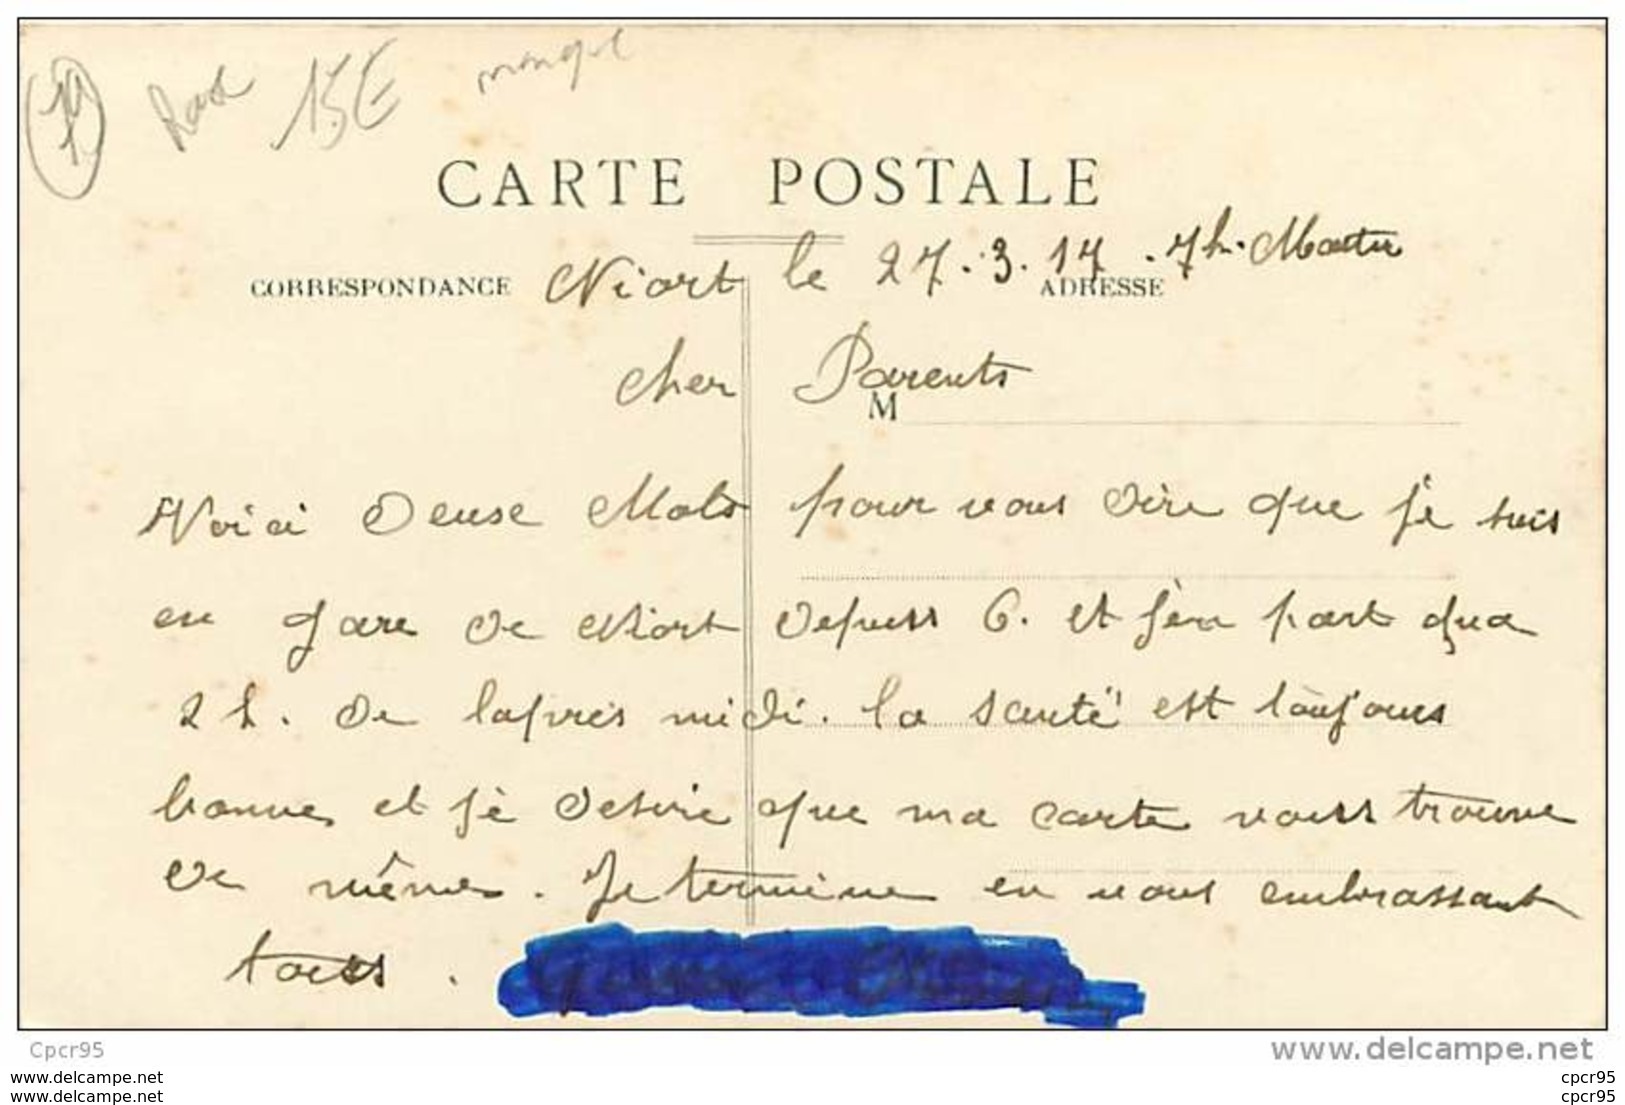 79 Rare 15E manque
CARTE POSTALE
CORRESPONDANCE
ADRESSE
Niort le 27.3.17. 7h. Matin
Cher Parents
M
Voici Deuse Mots pour vous dire que je suis
en gare de Niort depuis 6. et j'en part qua
2 h. de lapres midi. la santé est toujours
bonne et je desire que ma carte vous trouve
de même. Je termine en vous embrassant
tous.
Cpcr95
www.delcampe.net
www.delcampe.net
cpcr95
www.delcampe.net
cpcr95